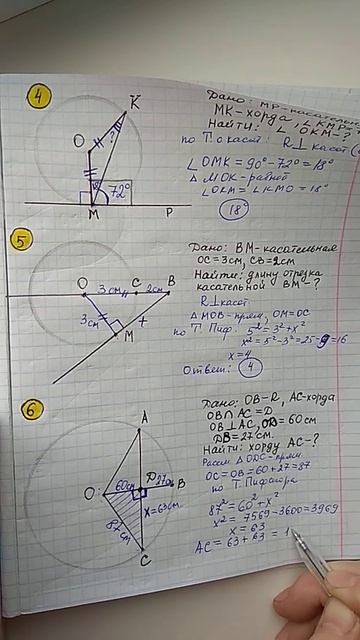 4
K
O
?
72°
M
P
Дано: МР-касательн
МК-хорда, ∠КМР=
Найти: ∠ОКМ-?
по Т. о касат: R⊥касат
∠ОМК=90°-72°=18°
△МОК-равноб
∠ОКМ=∠КМО=18°
18°
5
O
C
B
3см
2см
3см
M
Дано: ВМ-касательная
ОС=3см, СВ=2см
Найти: длину отрезка
касательной ВМ-?
R⊥касат.
△МОВ-прям, ОМ=ОС
по Т. Пиф. 5²=3²+x²
x²=5²-3²=25-9=16
x=4
Ответ: 4
6
A
60см
D
27см
B
O
x=63см
87см
C
Дано: ОВ-R, АС-хорда
ОВ∩АС=D
ОВ⊥АС, OD=60см
DB=27см.
Найти: хорду АС-?
Рассм △ODC-прям.
ОС=ОВ=60+27=87
по Т. Пифагора
87²=60²+x²
x²=7569-3600=3969
x=63
АС=63+63=1